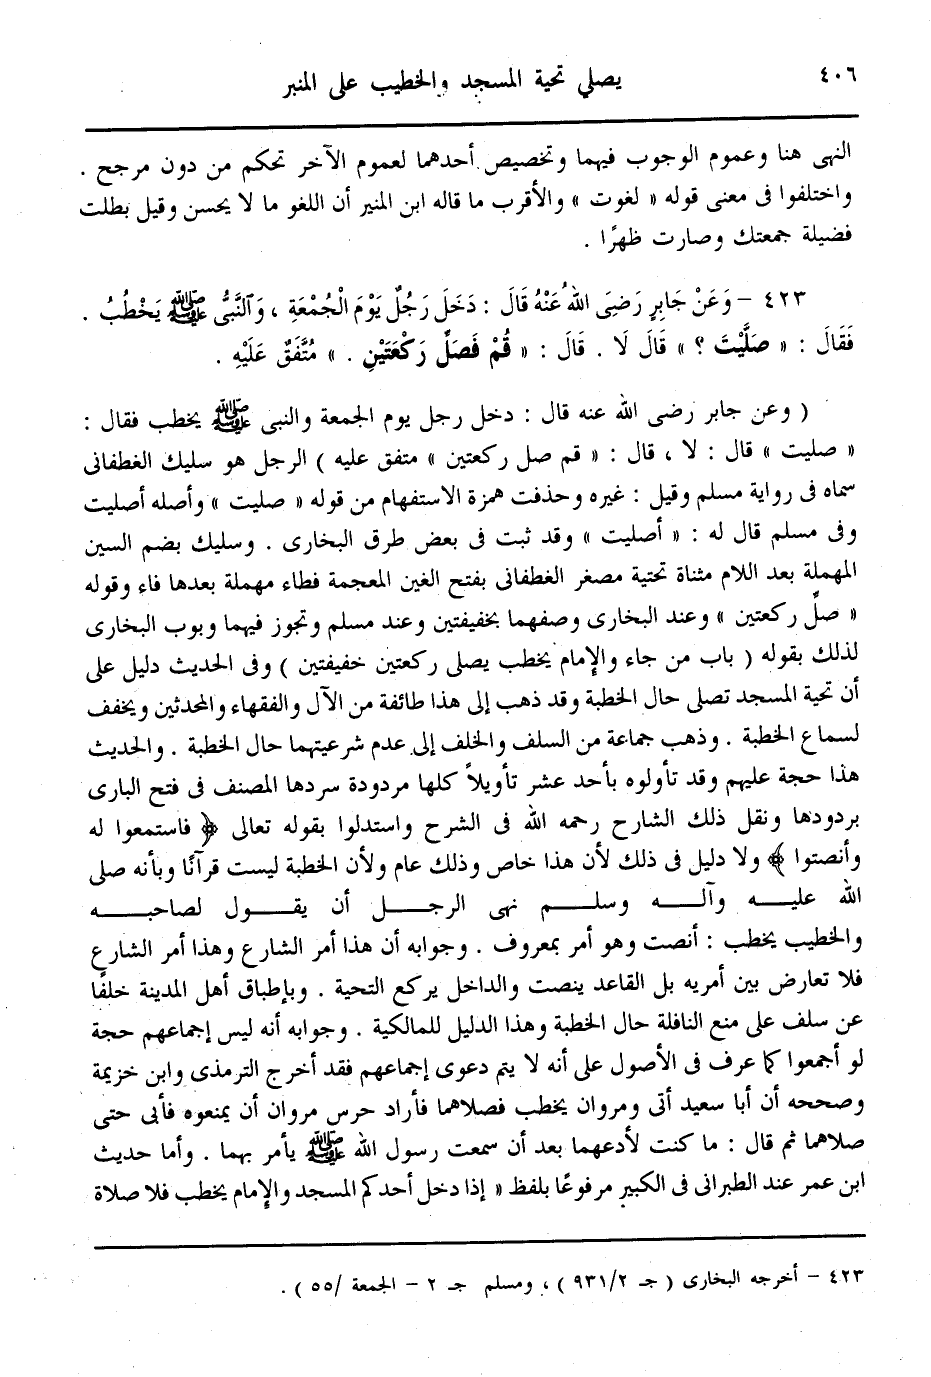 ٤٠٦
يصلي تحية المسجد والخطيب على المنبر
النهى هنا وعموم الوجوب فيهما وتخصيص أحدهما لعموم الآخر تحكم من دون مرجح .
واختلفوا فى معنى قوله « لغوت » والأقرب ما قاله ابن المنير أن اللغو ما لا يحسن وقيل بطلت
فضيلة جمعتك وصارت ظهرًا .
٤٢٣ – وَعَنْ جَابِرٍ رَضِىَ اللهُ عَنْهُ قَالَ : دَخَلَ رَجُلٌ يَوْمَ الْجُمْعَةِ ، وَالنَّبىُّ ﷺ يَخْطُبُ .
فَقَالَ : « صَلَّيْتَ ؟ » قَالَ لَا . قَالَ : « قُمْ فَصَلِّ رَكْعَتَيْنِ . » مُتَّفَقٌ عَلَيْهِ .
( وعن جابر رضى الله عنه قال : دخل رجل يوم الجمعة والنبى ﷺ يخطب فقال :
« صليت » قال : لا ، قال : « قم صل ركعتين » متفق عليه ) الرجل هو سليك الغطفانى
سماه فى رواية مسلم وقيل : غيره وحذفت همزة الاستفهام من قوله « صليت » وأصله أصليت
وفى مسلم قال له : « أصليت » وقد ثبت فى بعض طرق البخارى . وسليك بضم السين
المهملة بعد اللام مثناة تحتية مصغر الغطفانى بفتح الغين المعجمة فطاء مهملة بعدها فاء وقوله
« صلِّ ركعتين » وعند البخارى وصفهما بخفيفتين وعند مسلم وتجوز فيهما وبوب البخارى
لذلك بقوله ( باب من جاء والإمام يخطب يصلى ركعتين خفيفتين ) وفى الحديث دليل على
أن تحية المسجد تصلى حال الخطبة وقد ذهب إلى هذا طائفة من الآل والفقهاء والمحدثين ويخفف
لسماع الخطبة . وذهب جماعة من السلف والخلف إلى عدم شرعيتهما حال الخطبة . والحديث
هذا حجة عليهم وقد تأولوه بأحد عشر تأويلاً كلها مردودة سردها المصنف فى فتح البارى
بردودها ونقل ذلك الشارح رحمه الله فى الشرح واستدلوا بقوله تعالى ﴿ فاستمعوا له
وأنصتوا ﴾ ولا دليل فى ذلك لأن هذا خاص وذلك عام ولأن الخطبة ليست قرآنًا وبأنه صلى
الله عليــه وآلــه وســلــم نهى الرجــل أن يقــول لصاحبــه
والخطيب يخطب : أنصت وهو أمر بمعروف . وجوابه أن هذا أمر الشارع وهذا أمر الشارع
فلا تعارض بين أمريه بل القاعد ينصت والداخل يركع التحية . وبإطباق أهل المدينة خلفًا
عن سلف على منع النافلة حال الخطبة وهذا الدليل للمالكية . وجوابه أنه ليس إجماعهم حجة
لو أجمعوا كما عرف فى الأصول على أنه لا يتم دعوى إجماعهم فقد أخرج الترمذى وابن خزيمة
وصححه أن أبا سعيد أتى ومروان يخطب فصلاهما فأراد حرس مروان أن يمنعوه فأبى حتى
صلاهما ثم قال : ما كنت لأدعهما بعد أن سمعت رسول الله ﷺ يأمر بهما . وأما حديث
ابن عمر عند الطبرانى فى الكبير مرفوعًا بلفظ « إذا دخل أحدكم المسجد والإمام يخطب فلا صلاة
٤٢٣ – أخرجه البخارى ( جـ ٩٣١/٢ ) ، ومسلم جـ ٢ – الجمعة /٥٥ ) .